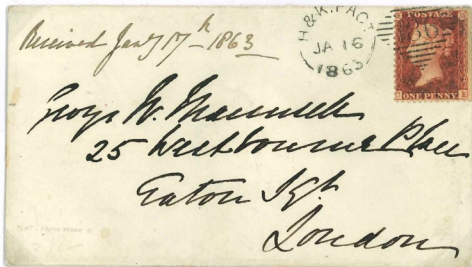 Received Jany 17th 1863
H&K.PACT
JA 16
1863
POSTAGE
ONE PENNY
George W. Maunsell
25 Westbourne Place
Eaton Sqr.
London